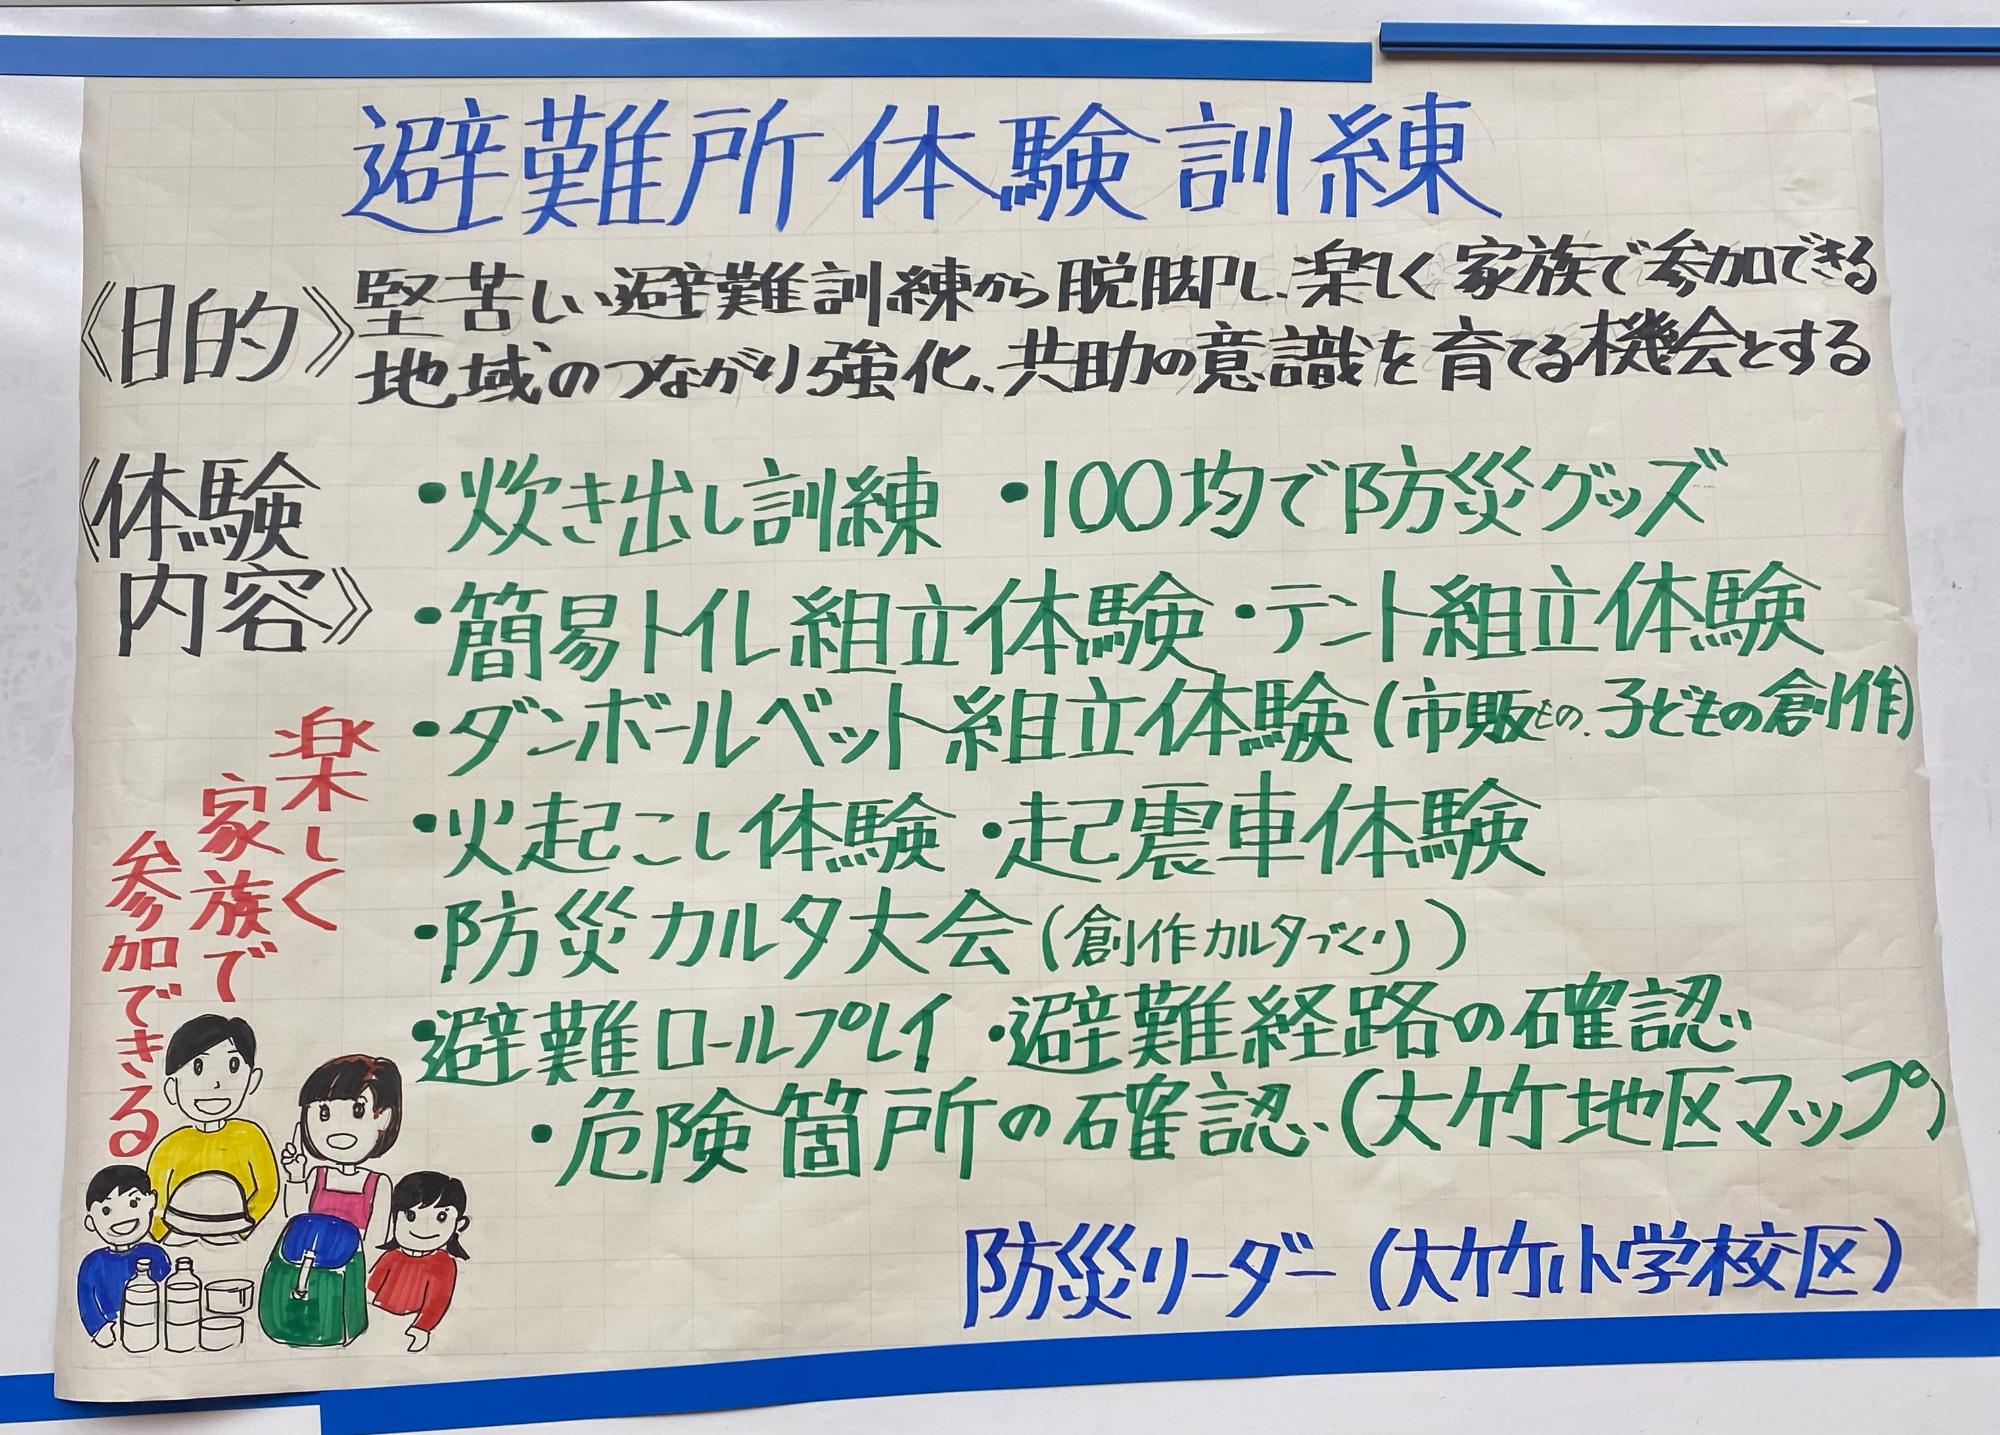 避難所体験訓練
《目的》堅苦しい避難訓練から脱却し、楽しく家族で参加できる
地域のつながり強化、共助の意識を育てる機会とする
《体験
内容》
・炊き出し訓練 ・100均で防災グッズ
・簡易トイレ組立体験 ・テント組立体験
・ダンボールベット組立体験(市販もの、子どもの創作)
・火起こし体験 ・起震車体験
・防災カルタ大会(創作カルタづくり)
・避難ロールプレイ ・避難経路の確認
・危険箇所の確認(大竹地区マップ)
楽しく
家族で
参加できる
防災リーダー(大竹小学校区)